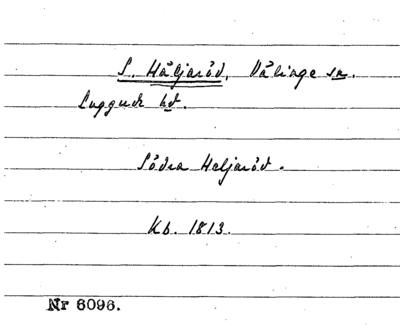 S. Häljaröd, Välinge sn.
Luggude hd.
Södra Heljaröd.
Kb. 1813.
Nr 6096.